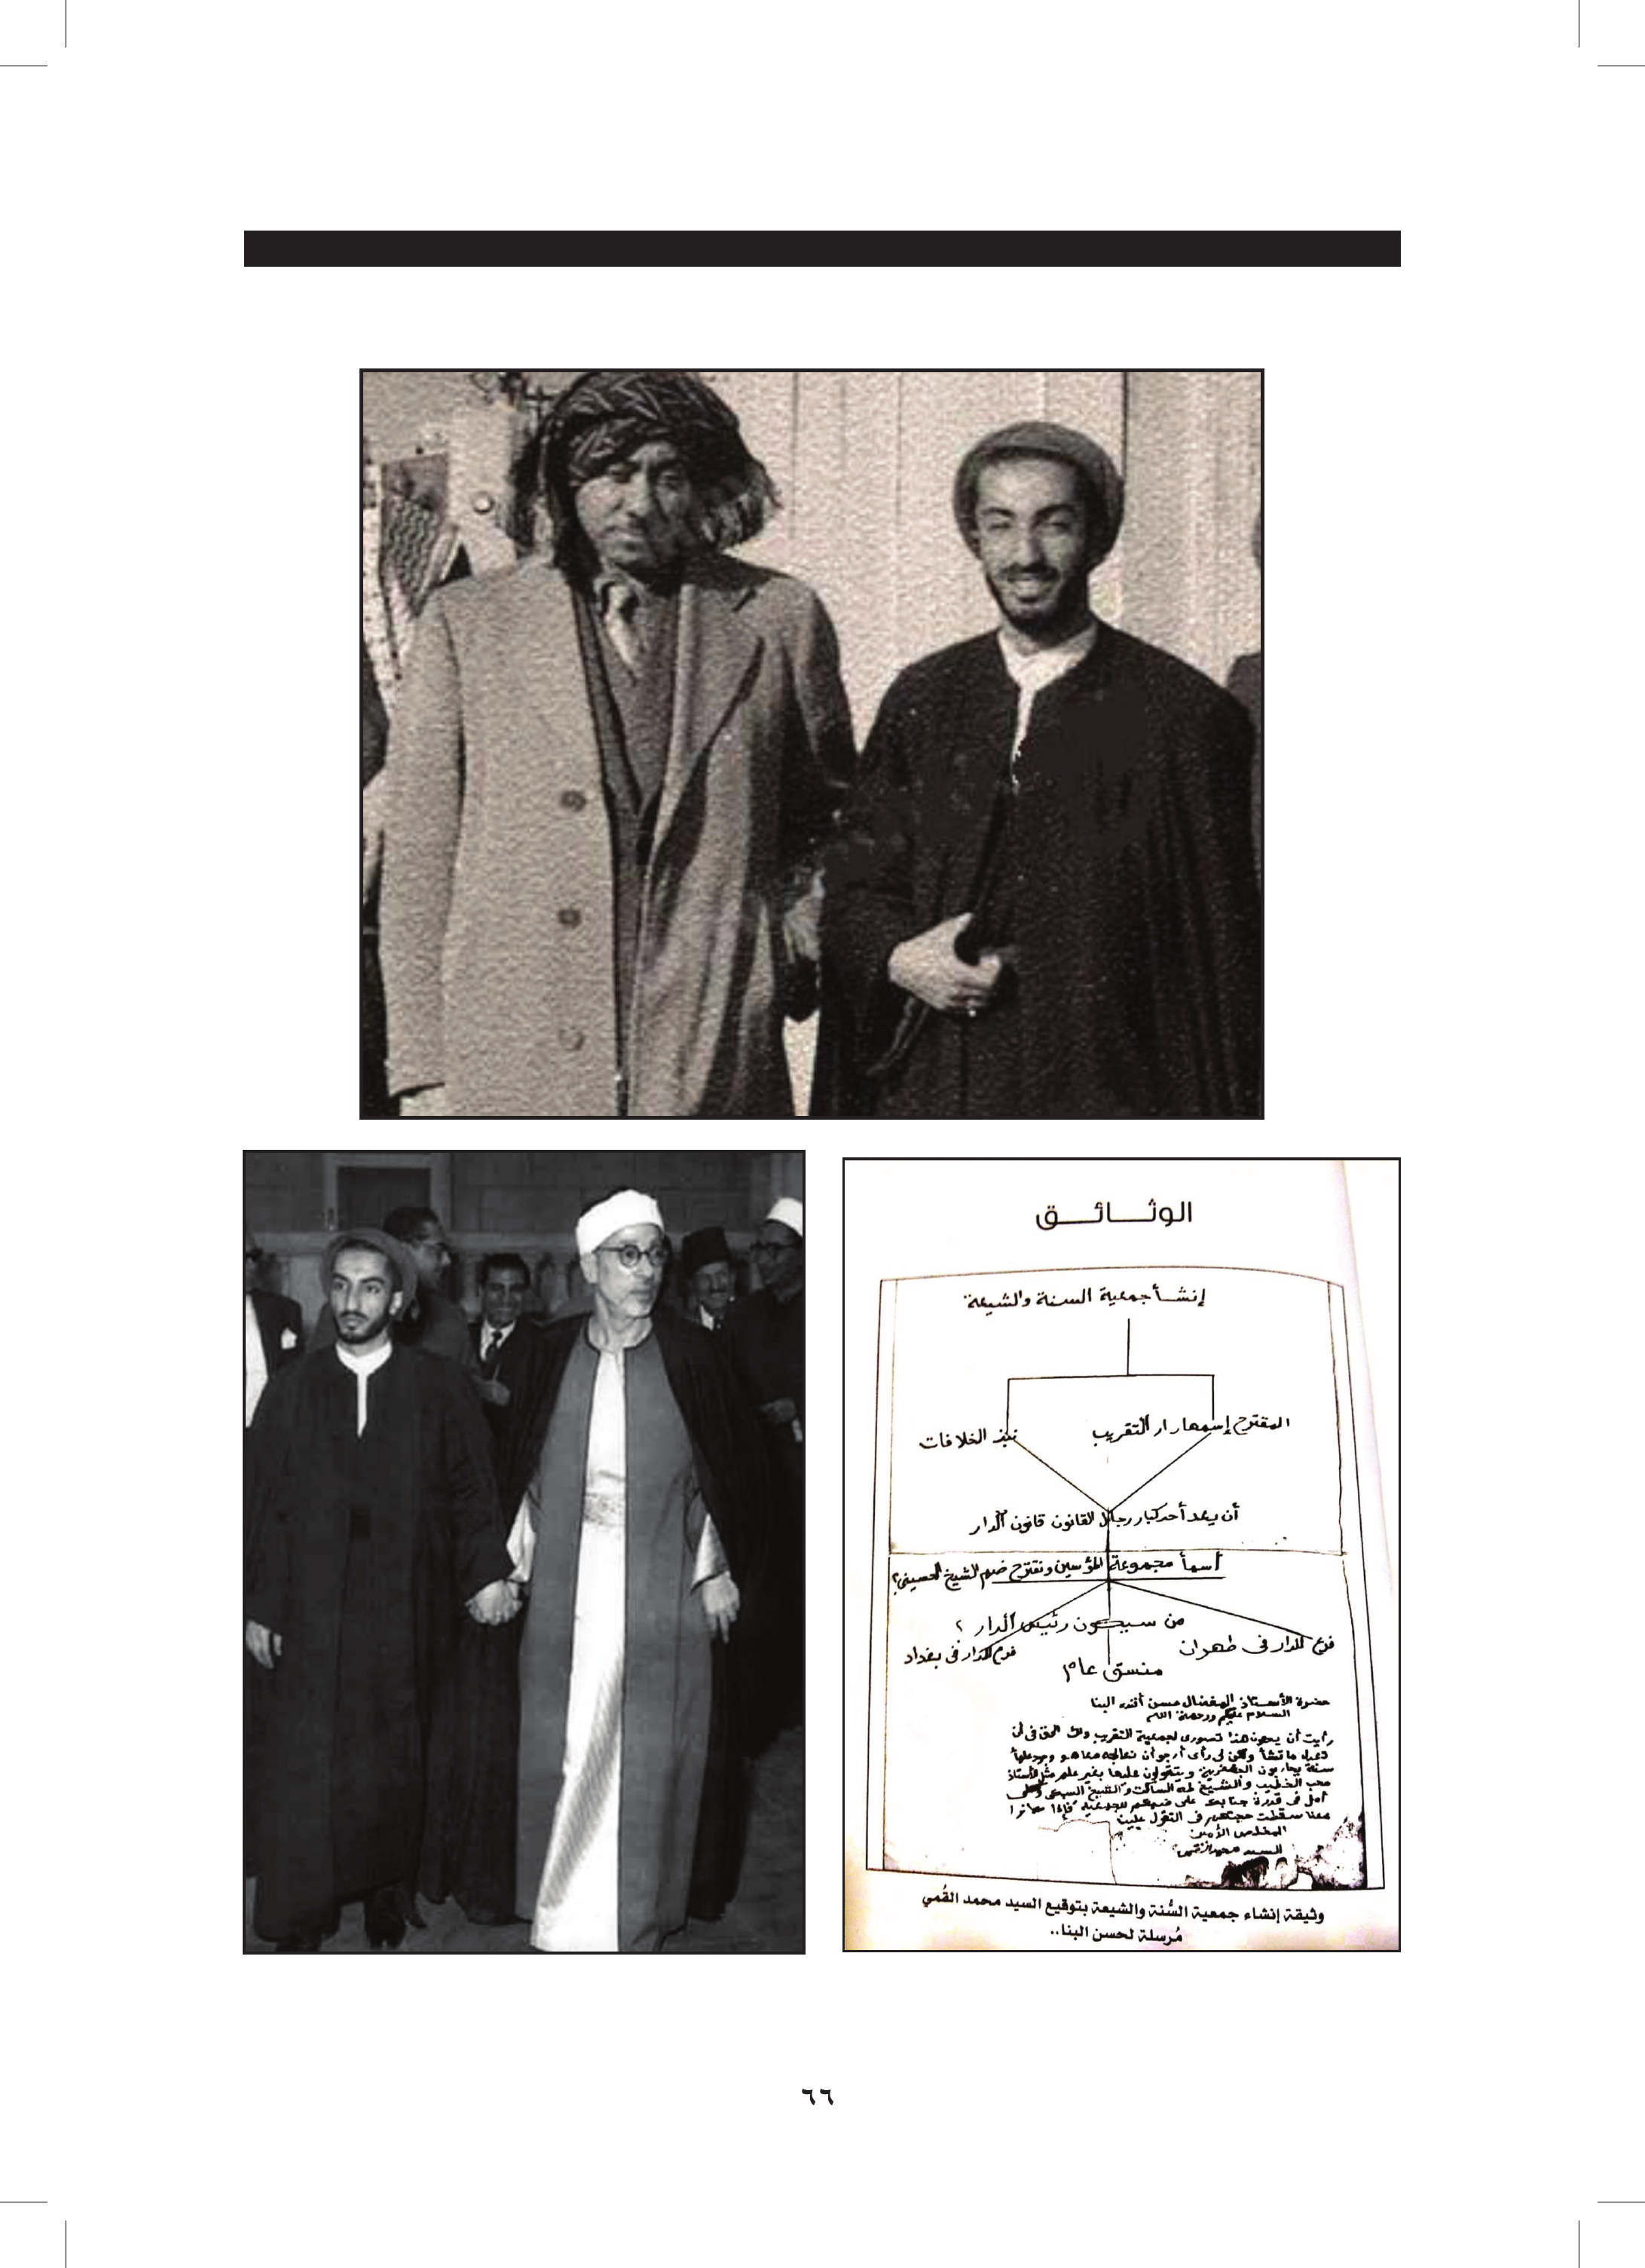 الوثائق
إنشأ جمعية السنة والشيعة
المقترح إسمها دار التقريب
نبذ الخلافات
أن يعد أحد كبار رجال القانون قانون الدار
أسمأ مجموعة المؤسسين ونقترح ضم الشيخ الحسيني؟
من سيكون رئيس الدار ؟
فرع للدار فى طهران
فرع للدار فى بغداد
منسق عام
حضرة الأستاذ المفضال حسن أفندى البنا
السلام عليكم ورحمة الله
رأيت أن يكون هذا تصورى لجمعية التقريب ولك الحق فى أن
تعدل ما تشأ ولكن لى رأى أرجو أن نعالجه معا هو وجود علمأ
سنة يحاربون الجعفرية ويتقولون عليها بغير علم مثل الأستاذ
محب الخطيب والشيخ طه الساكت والشيخ السبكى
أمل فى قدرة جنابك على ضمهم للجمعية فإذا صاروا
معنا سقطت حجتهم فى التقول علينا
المخلص الأمين
السيد محمد القمى
وثيقة إنشاء جمعية السُّنة والشيعة بتوقيع السيد محمد القُمي
مُرسلة لحسن البنا..
٦٦